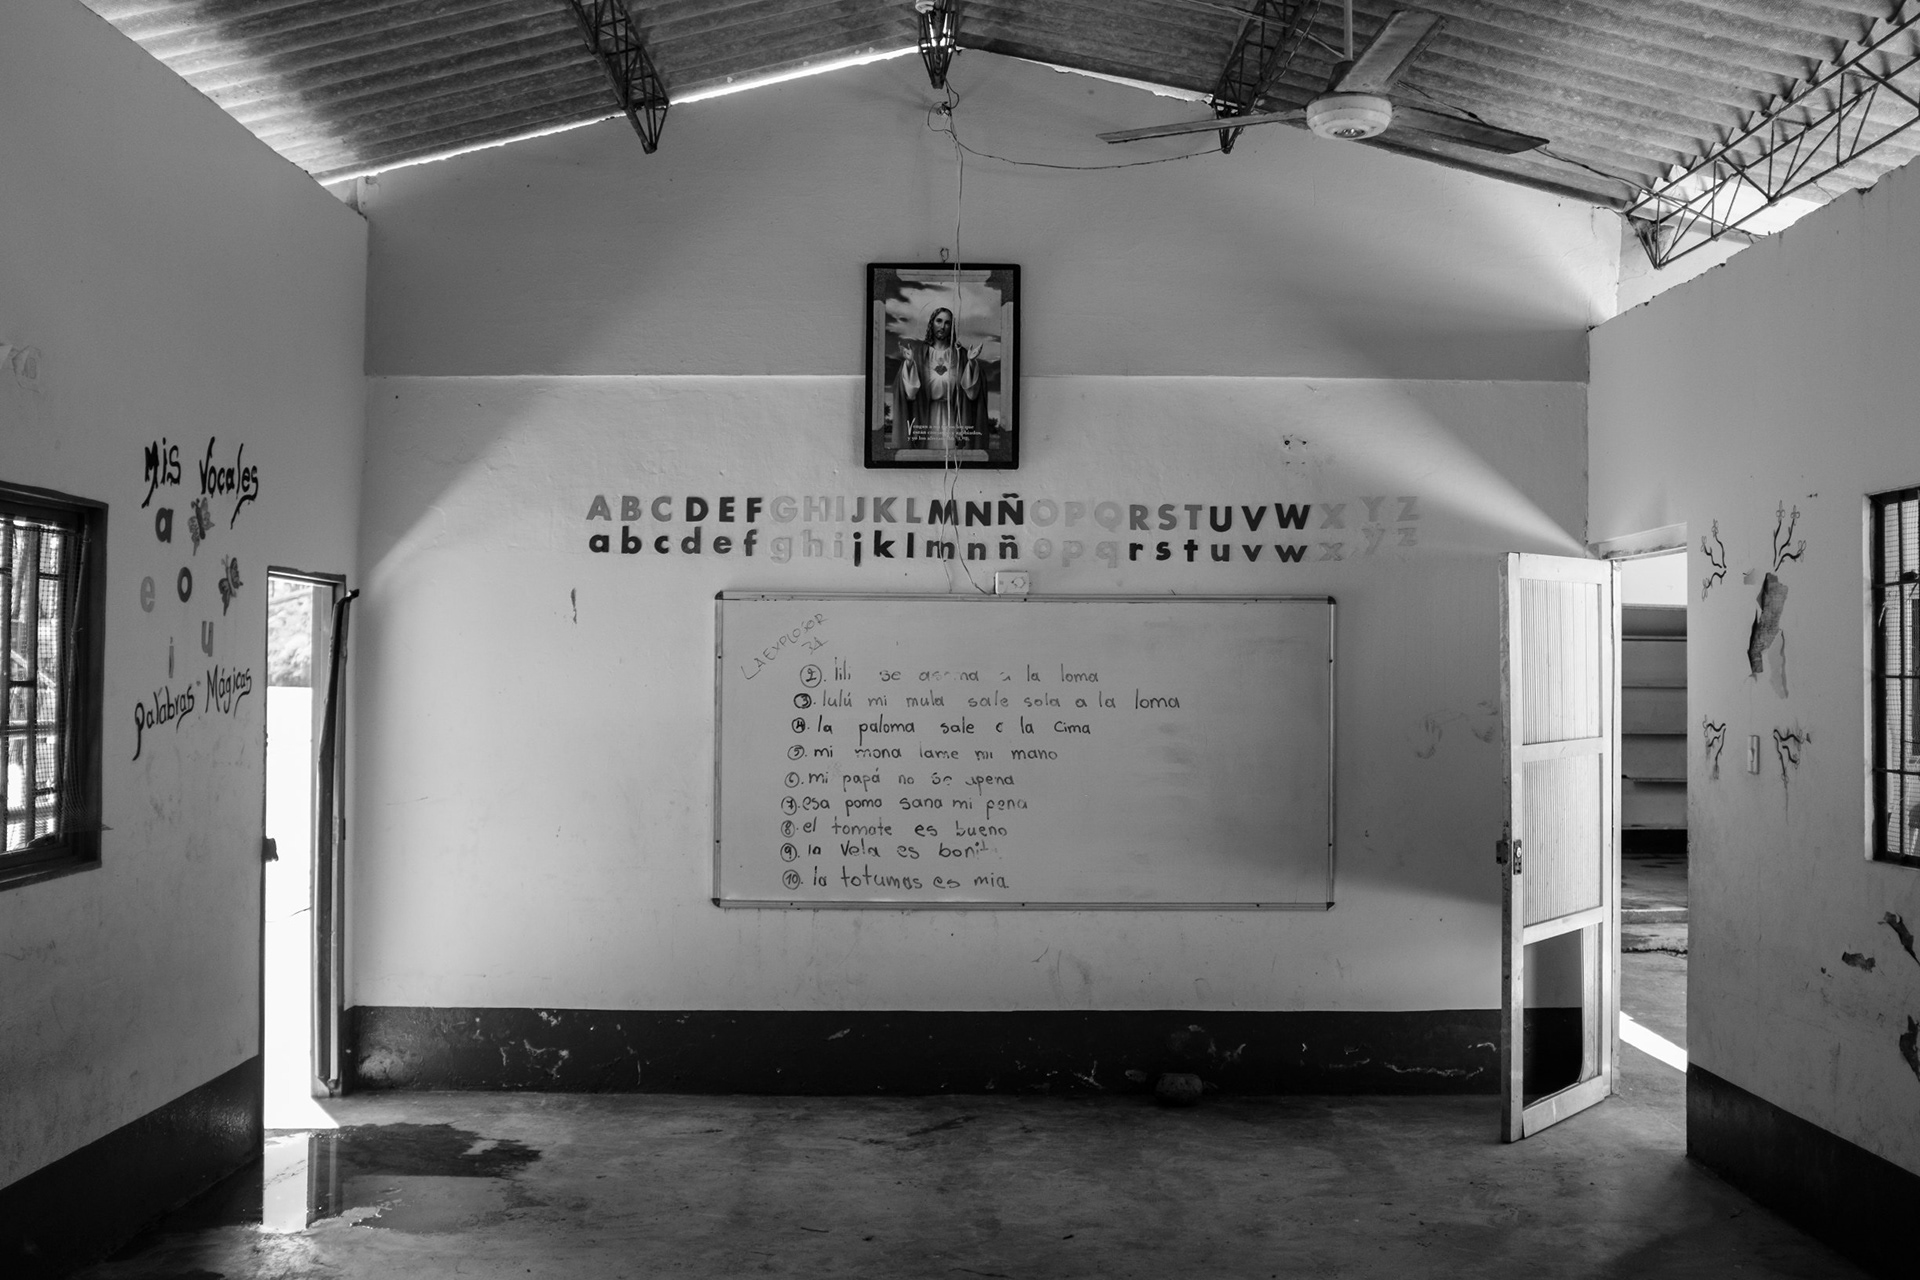 Mis Vocales
a
e o
i u
palabras Mágicas
ABCDEFGHIJKLMNÑOPQRSTUVWXYZ
abcdefghijklmnñopqrstuvwxyz
LA EXPLOSOR
31
2. lili se a la loma
3. lulú mi mula sale sola a la loma
4. la paloma sale la cima
5. mi mona lame mi mano
6. mi papá no se
7. esa poma sana mi pena
8. el tomate es bueno
9. la vela es bonit
10. la totumas es mia